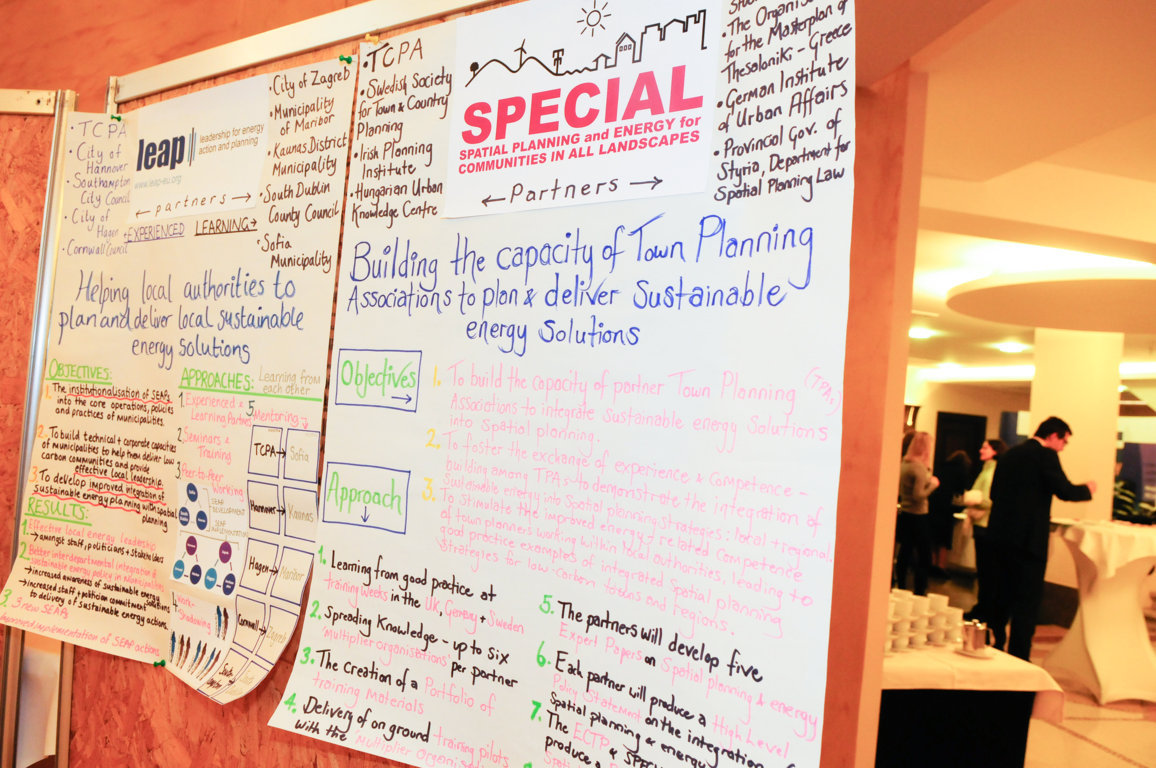 TCPA
• City of
Hannover
• Southampton
City Council
• City of
Hagen
• Cornwall Council
leap
leadership for energy
action and planning
www.leap-eu.org
← partners →
←EXPERIENCED LEARNING→
• City of Zagreb
• Municipality
of Maribor
• Kaunas District
Municipality
• South Dublin
County Council
• Sofia
Municipality
Helping local authorities to
plan and deliver local sustainable
energy solutions
OBJECTIVES:
1. The institutionalisation of SEAPs
into the core operations, policies
and practices of municipalities.
2. To build technical + corporate capacities
of municipalities to help them deliver low
carbon communities and provide
effective local leadership.
3. To develop improved integration of
sustainable energy planning with spatial
planning
RESULTS:
1. Effective local energy leadership
→ amongst staff, politicians + stakeholders
2. Better interdepartmental integration of
sustainable energy policy in municipalities
→ increased awareness of sustainable energy solutions
→ increased staff + politician commitment
to delivery of sustainable energy actions.
3. 3 new SEAPs
implementation of SEAP actions
APPROACHES: Learning from
each other
1. Experienced &
Learning Partners
2. Seminars &
Training
3. Peer-to-Peer
Working
SEAP
DEVELOPMENT
SEAP
IMPLEMENTATION
4. Work-
Shadowing
5. Mentoring
TCPA → Sofia
Hannover → Kaunas
Hagen → Maribor
Cornwall → Zagreb
• TCPA
• Swedish Society
for Town & Country
Planning
• Irish Planning
Institute
• Hungarian Urban
Knowledge Centre
SPECIAL
SPATIAL PLANNING and ENERGY for
COMMUNITIES IN ALL LANDSCAPES
← Partners →
• The Organis
for the Masterplan of
Thesaloniki – Greece
• German Institute
of Urban Affairs
• Provincial Gov. of
Styria, Department for
Spatial Planning Law
Building the capacity of Town Planning
Associations to plan & deliver Sustainable
energy Solutions
Objectives
→
1. To build the capacity of partner Town Planning
Associations (TPAs) to integrate sustainable energy Solutions
into Spatial planning.
2. To foster the exchange of experience & competence –
building among TPAs – to demonstrate the integration of
Sustainable energy into Spatial planning strategies: local + regional.
3. To stimulate the improved energy-related competence
of town planners working within local authorities, leading to
good practice examples of integrated Spatial planning
Strategies for low-carbon towns and regions.
Approach
↓
1. Learning from good practice at
training weeks in the UK, Germany + Sweden
2. Spreading Knowledge – up to six
'multiplier organisations' per partner
3. The creation of a Portfolio of
training materials
4. Delivery of on ground training pilots
with the Multiplier
5. The partners will develop five
Expert Papers on Spatial planning & energy
6. Each partner will produce a High Level
Policy Statement on the integration
Spatial planning & energy
7. The ECTP &
produce a